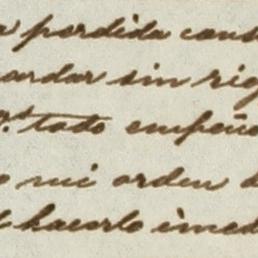 a perdida cont
ardar sin rig
g.s todo empeño
o mi orden d
l hacerlo inmed